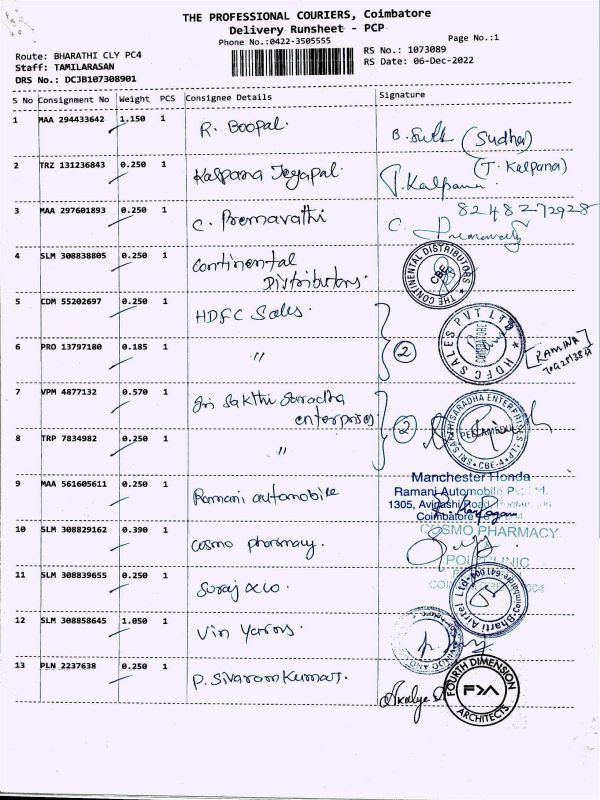 THE PROFESSIONAL COURIERS, Coimbatore
Delivery Runsheet - PCP
Phone No.:0422-3505555
Page No.:1
Route: BHARATHI CLY PC4
RS No.: 1073089
Staff: TAMILARASAN
RS Date: 06-Dec-2022
DRS No.: DCJB107308901
S No Consignment No Weight PCS Consignee Details Signature
1 MAA 294433642 1.150 1 R. Boopal. (Sudha)
2 TRZ 131236843 0.250 1 Kalpana Jeyapal. T. Kalpana (T. Kalpana)
3 MAA 297601893 0.250 1 C. Premavathi 8248272928
C. Premavathi
4 SLM 308838805 0.250 1 Continental
Distributors. THE CONTINENTAL DISTRIBUTORS CBE
5 CDM 55202697 0.250 1 HDFC Sales.
HDFC SALES PVT LTD COIMBATORE
6 PRO 13797180 0.185 1 〃 2
7 VPM 4877132 0.570 1 Sri Sakthi Saradha
enterprises 2
8 TRP 7834982 0.250 1 〃
9 MAA 561605611 0.250 1 Ramani automobile
Manchester Honda
Ramani Automobile Pvt. Ltd.
1305, Avinashi Road,
Coimbatore
10 SLM 308829162 0.390 1 Cosmo pharmacy.
COSMO PHARMACY
POLYCLINIC
11 SLM 308839655 0.250 1 Suraj
Bharti Airtel Ltd
12 SLM 308858645 1.050 1 Vin Yarns.
13 PLN 2237638 0.250 1 P. Sivaram Kumar.
FOURTH DIMENSION
ARCHITECTS